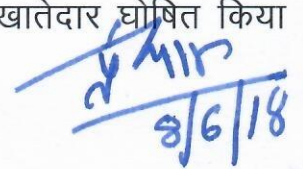 खातेदार घोषित किया
8/6/18